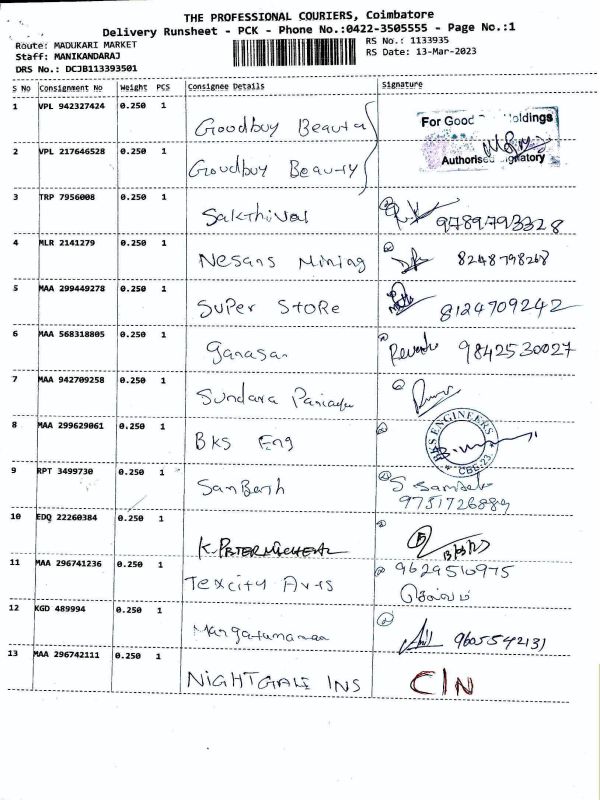 THE PROFESSIONAL COURIERS, Coimbatore
Delivery Runsheet - PCK - Phone No.:0422-3505555 - Page No.:1
Route: MADUKARI MARKET
RS No.: 1133935
Staff: MANIKANDARAJ
RS Date: 13-Mar-2023
DRS No.: DCJB113393501
S No Consignment No Weight PCS Consignee Details Signature
1 VPL 942327424 0.250 1 Goodbuy Beauta
For Good Holdings
Authorised Signatory
2 VPL 217646528 0.250 1 Goudbuy Beauty
3 TRP 7956008 0.250 1 Sakthivel 9789793328
4 MLR 2141279 0.250 1 Nesans Mining 8248798268
5 MAA 299449278 0.250 1 SUPer StoRe 8124709242
6 MAA 568318805 0.250 1 ganasan 9842530027
7 MAA 942709258 0.250 1 Sundara
8 MAA 299629061 0.250 1 BKS Eng
BKS ENGINEERS
CBE-23
9 RPT 3499730 0.250 1 SanBesh
9751726889
10 EDQ 22260384 0.250 1 K. PETER MICHEAL 13/03/23
11 MAA 296741236 0.250 1 Texcity 9629510975
செல்வம்
12 KGD 489994 0.250 1 9605542131
13 MAA 296742111 0.250 1 NIGHTGALE INS C/N